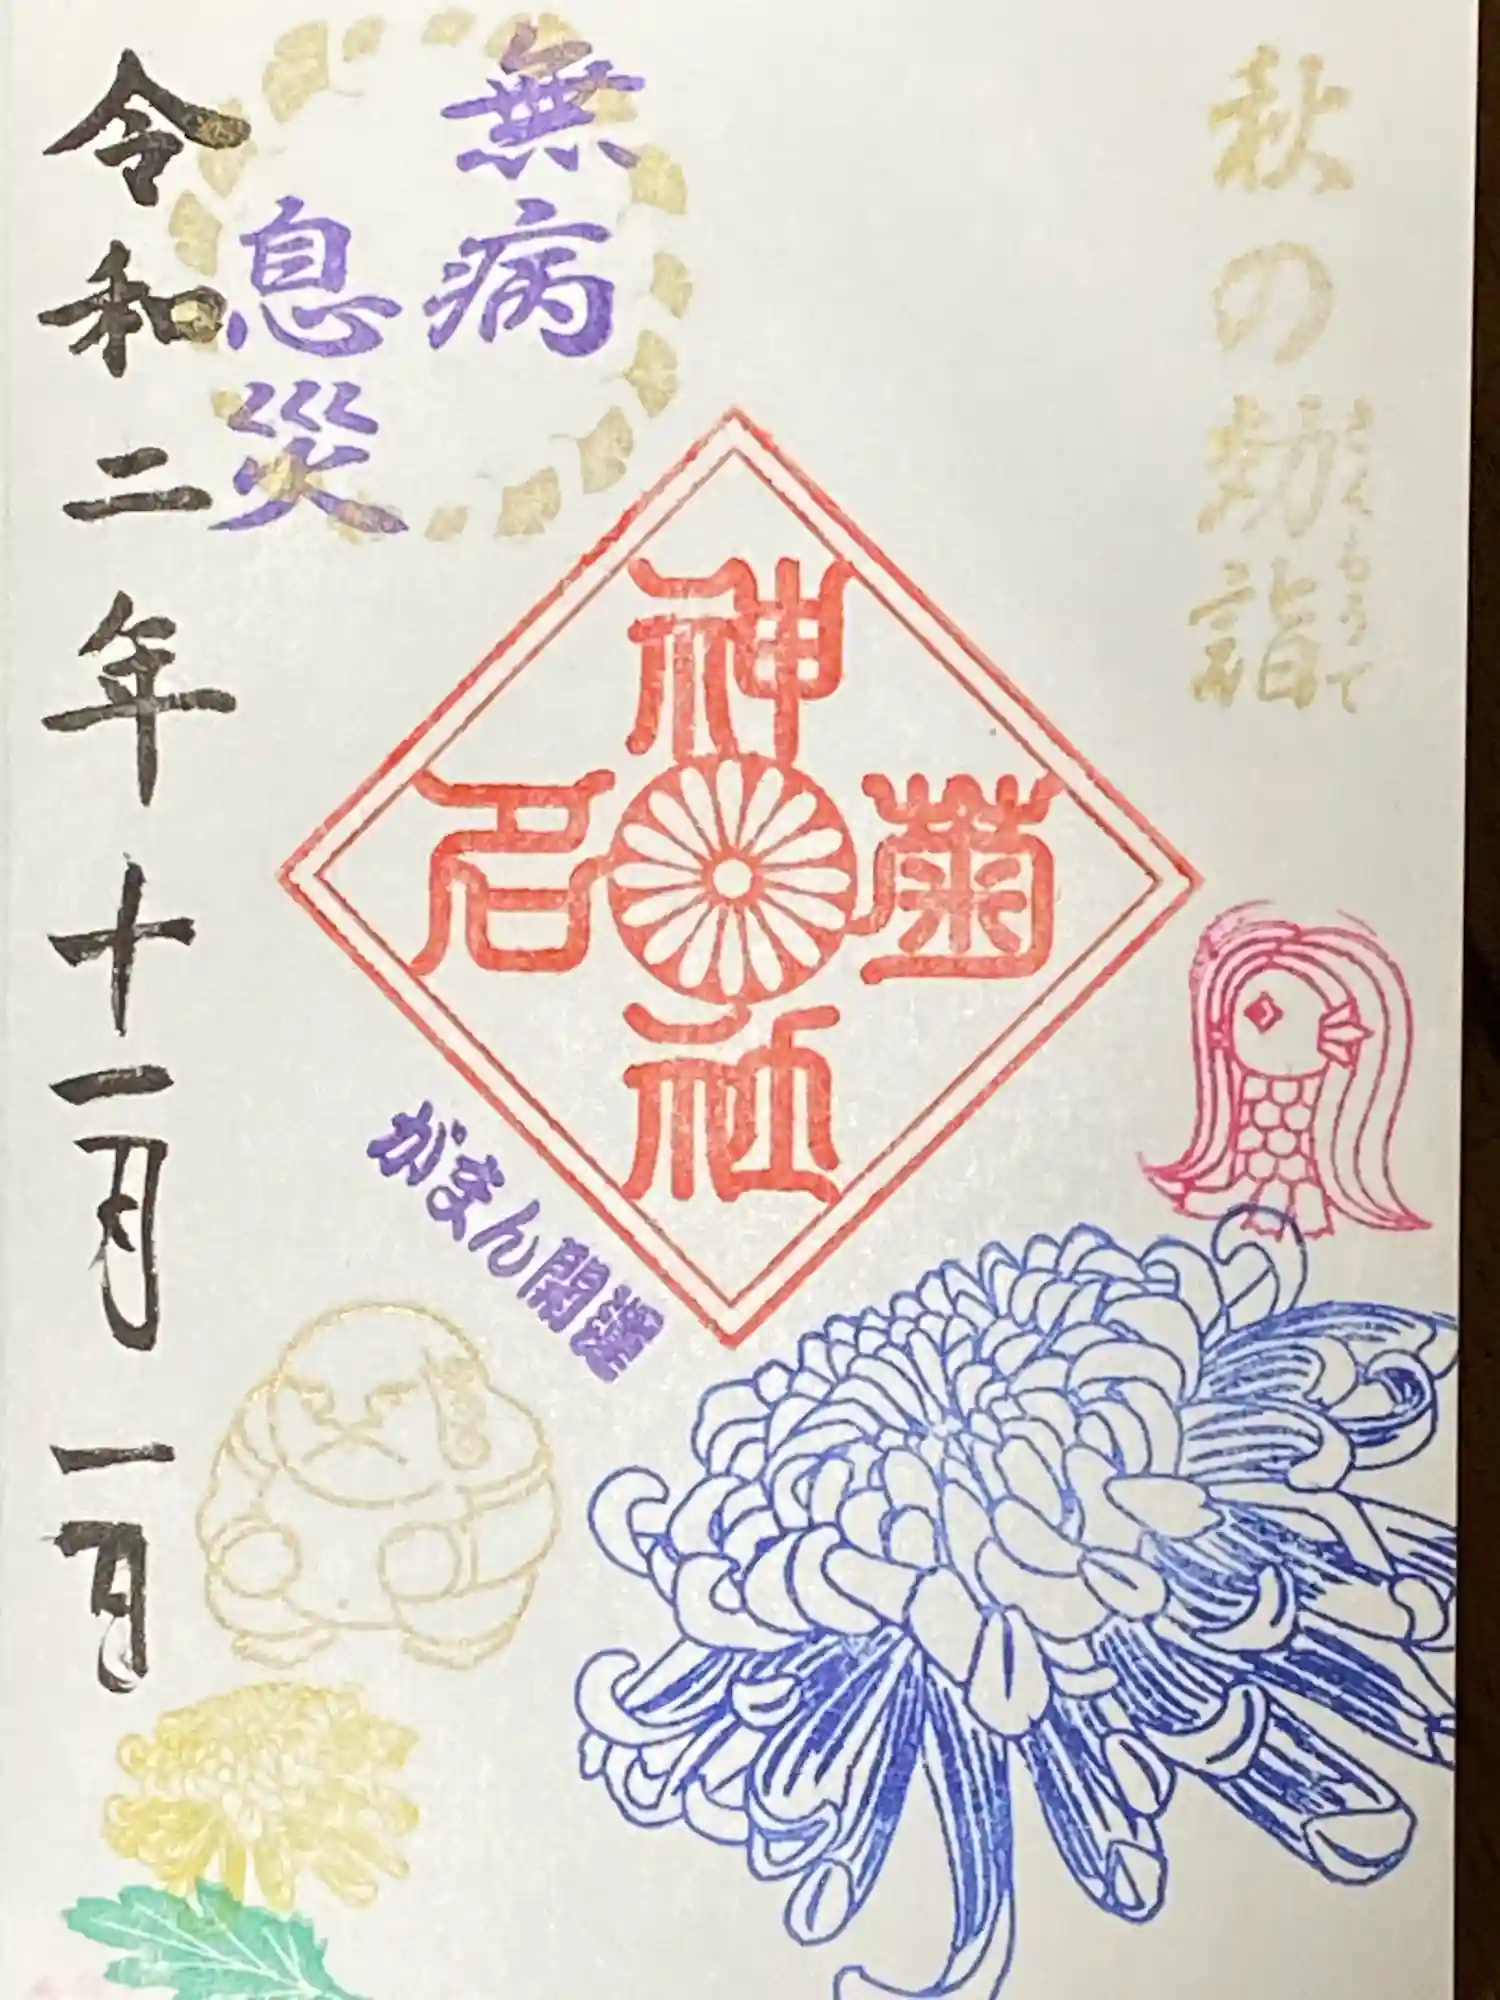 秋の勅詣
ちょくもうで
神
菊名
社
無病
息災
がまん開運
令和二年十一月一日